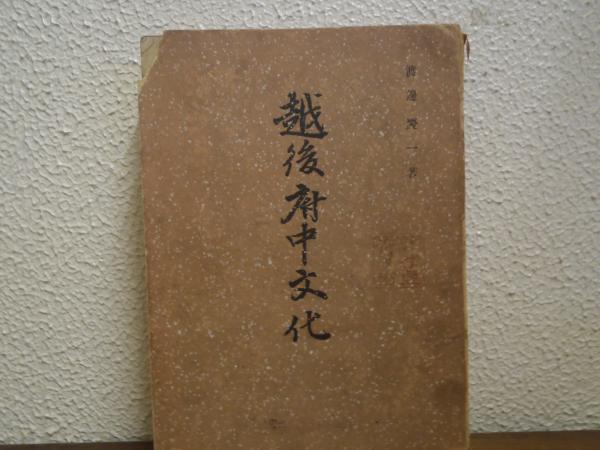 渡邊慶一著
越後府中文代